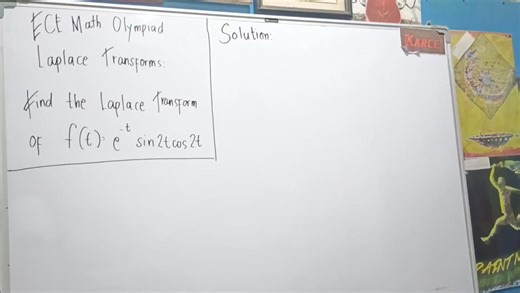 ECE Math Olympiad
Laplace Transforms:
Find the Laplace Transform
OF f(t)= e^-t sin2tcos2t
Solution:
KARCE
PAINT